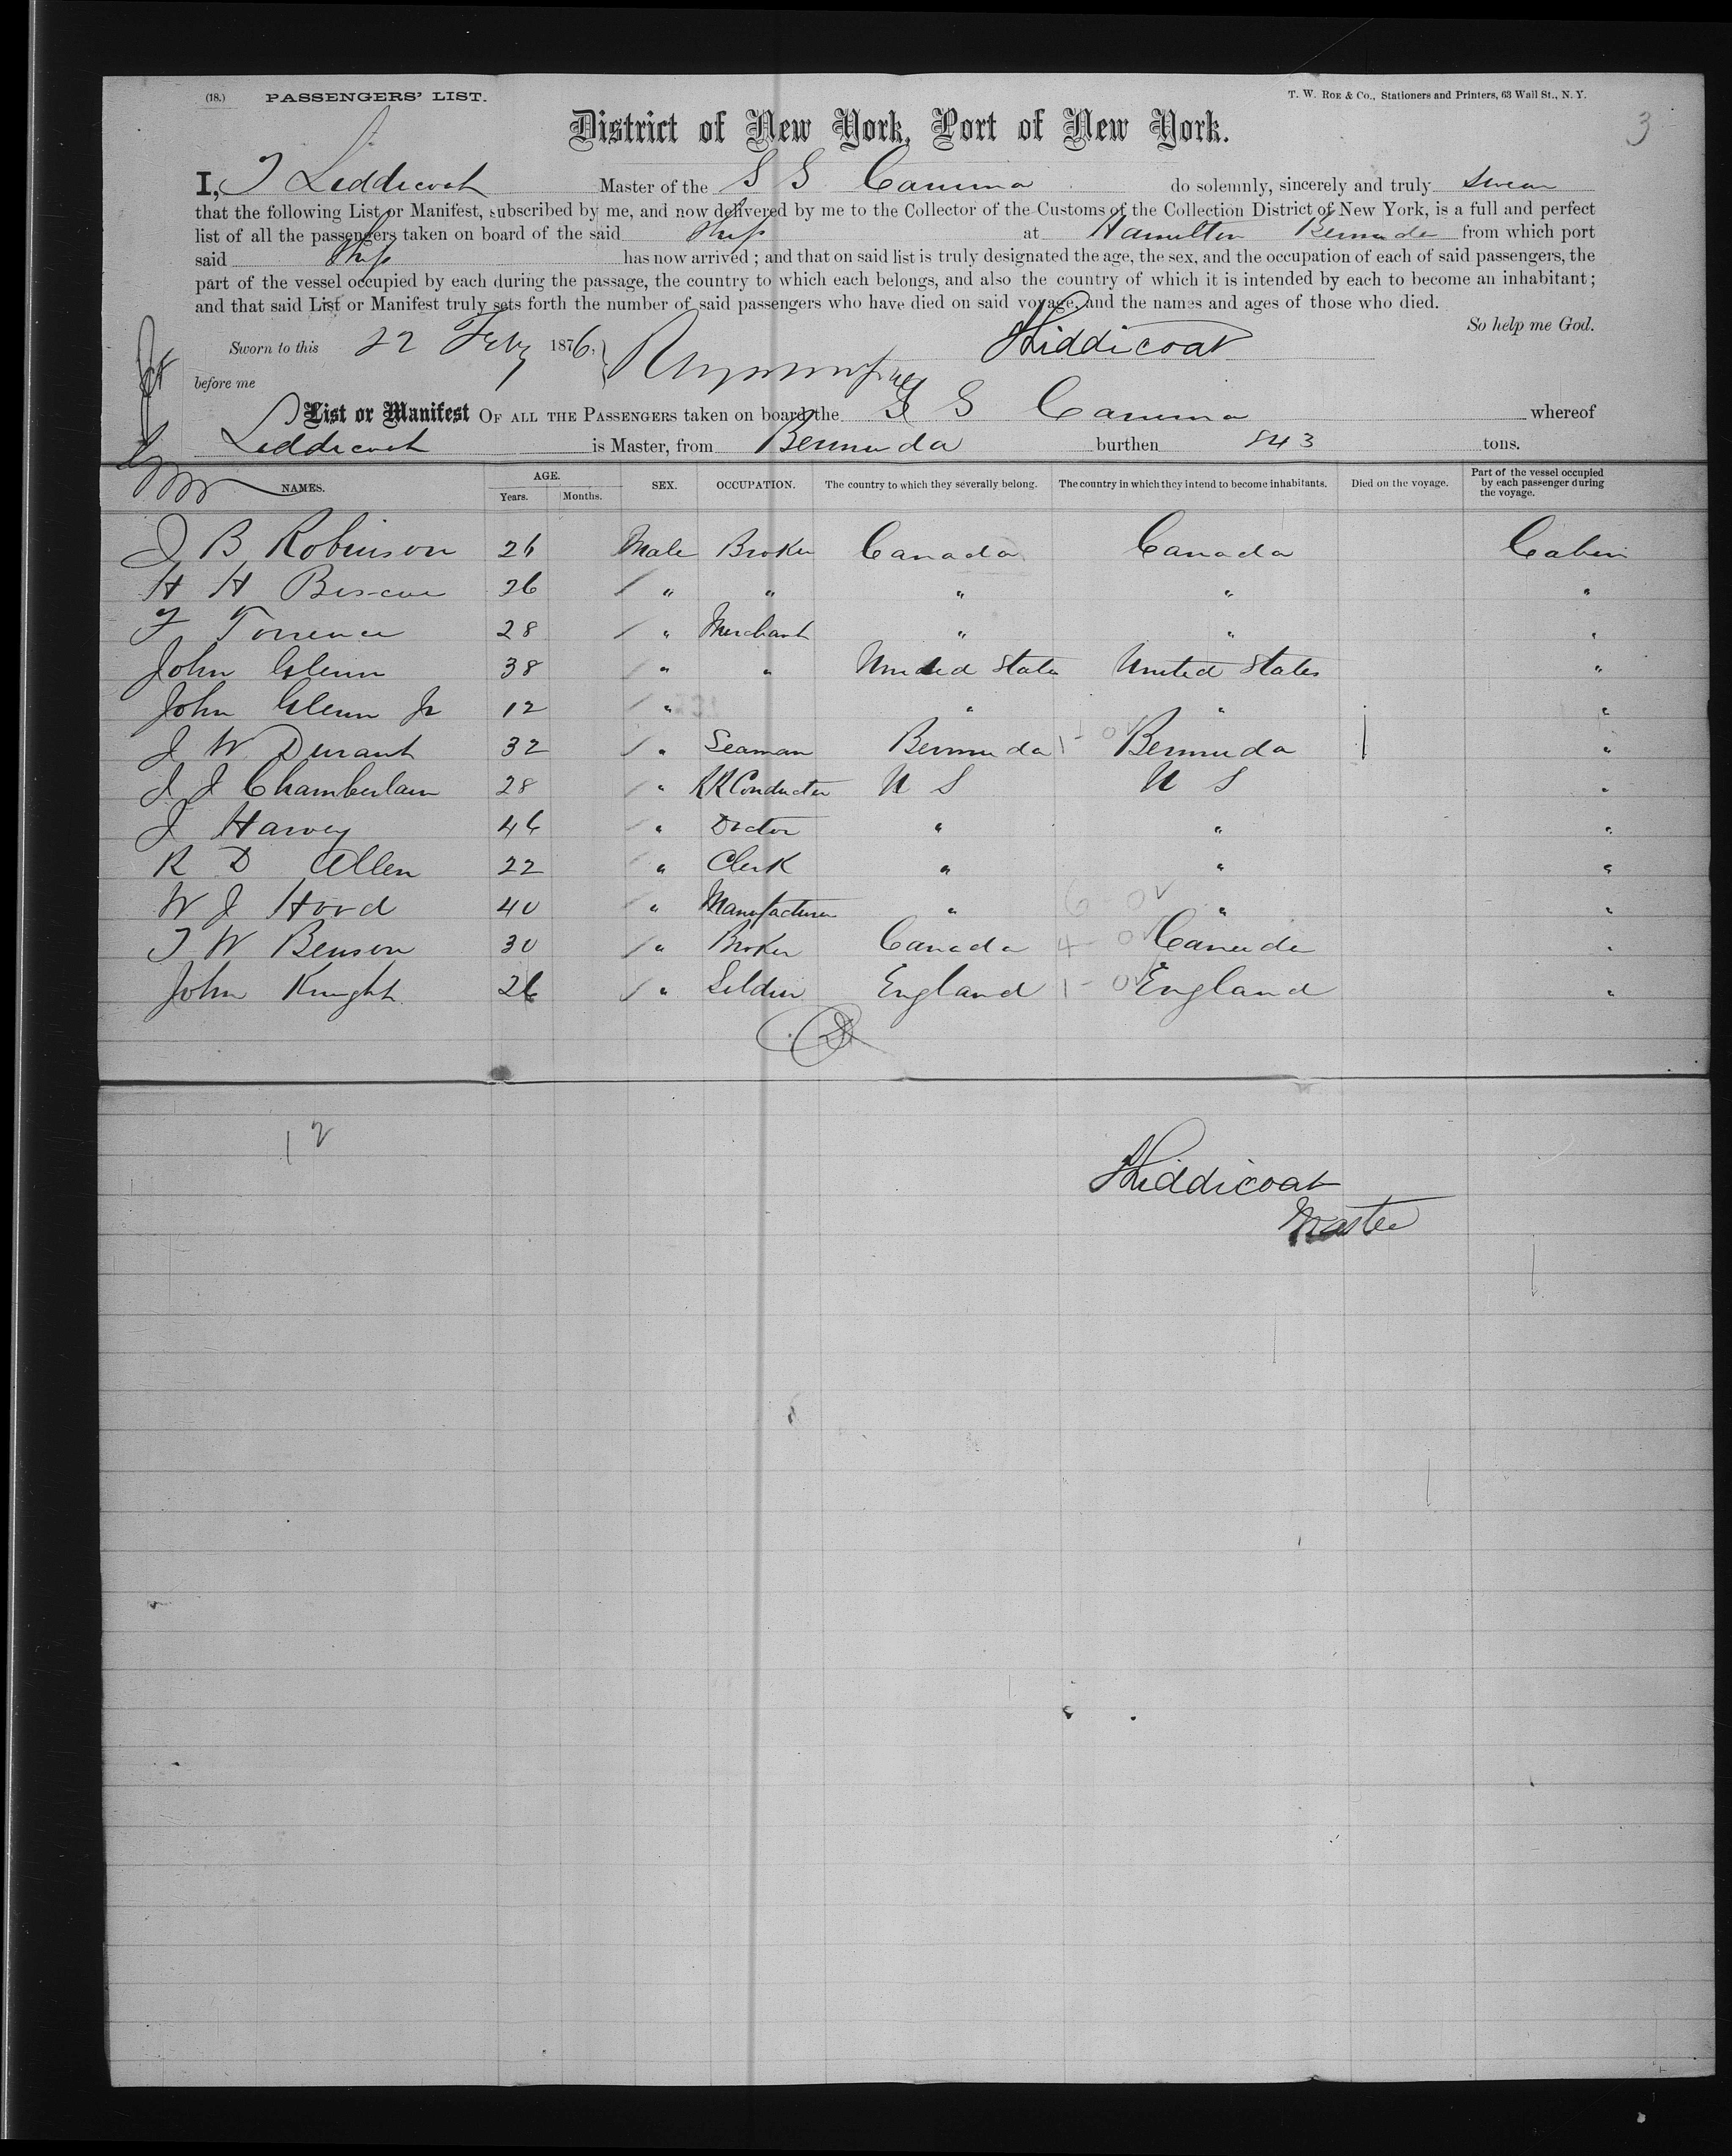 (18.) PASSENGERS' LIST. T. W. ROE & Co., Stationers and Printers, 63 Wall St., N. Y.
3
District of New York, Port of New York.
I, T Liddicoat Master of the S S Canima do solemnly, sincerely and truly swear
that the following List or Manifest, subscribed by me, and now delivered by me to the Collector of the Customs of the Collection District of New York, is a full and perfect
list of all the passengers taken on board of the said Ship at Hamilton Bermuda from which port
said Ship has now arrived; and that on said list is truly designated the age, the sex, and the occupation of each of said passengers, the
part of the vessel occupied by each during the passage, the country to which each belongs, and also the country of which it is intended by each to become an inhabitant;
and that said List or Manifest truly sets forth the number of said passengers who have died on said voyage, and the names and ages of those who died.
So help me God.
Sworn to this 22 Feby 1876, Liddicoat
before me
List or Manifest OF ALL THE PASSENGERS taken on board the S S Canima whereof
Liddicoat is Master, from Bermuda burthen 843 tons.
NAMES. AGE. Years. Months. SEX. OCCUPATION. The country to which they severally belong. The country in which they intend to become inhabitants. Died on the voyage. Part of the vessel occupied by each passenger during the voyage.
J B Robinson 26 Male Broker Canada Canada Cabin
H H Biscoe 26 " " " " "
F Torrence 28 " Merchant " " "
John Glenn 38 " " United States United States "
John Glenn Jr 12 " " " "
J W Durant 32 " Seaman Bermuda 1 - 0 Bermuda "
J J Chamberlain 28 " RR Conductor U S U S "
J Harvey 46 " Doctor " " "
R D Allen 22 " Clerk " " "
W J Hood 40 " Manufacturer " 6 - 0 " "
T W Benson 30 " Broker Canada 4 - 0 Canada "
John Knight 26 " Soldier England 1 - 0 England "
12
Liddicoat
Master